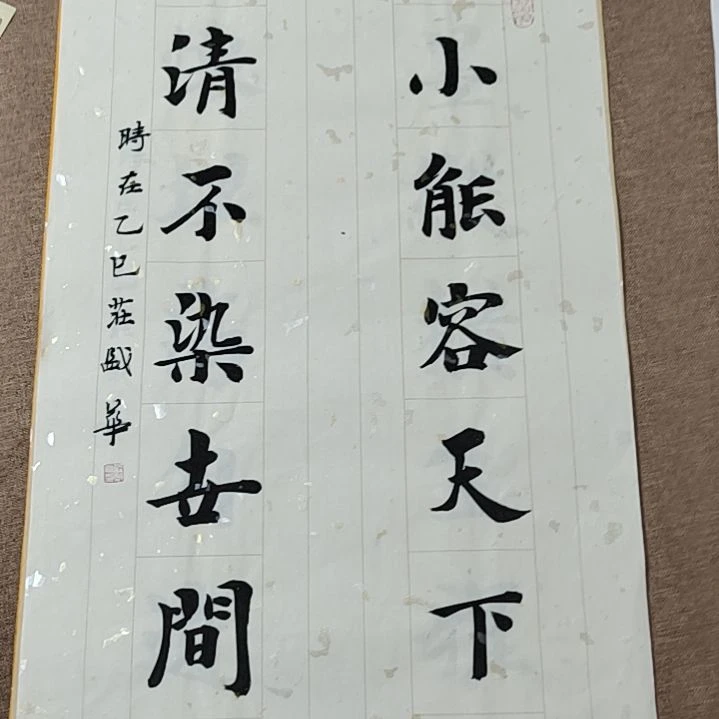 小能容天下
清不染世間
時在乙巳莊戲華